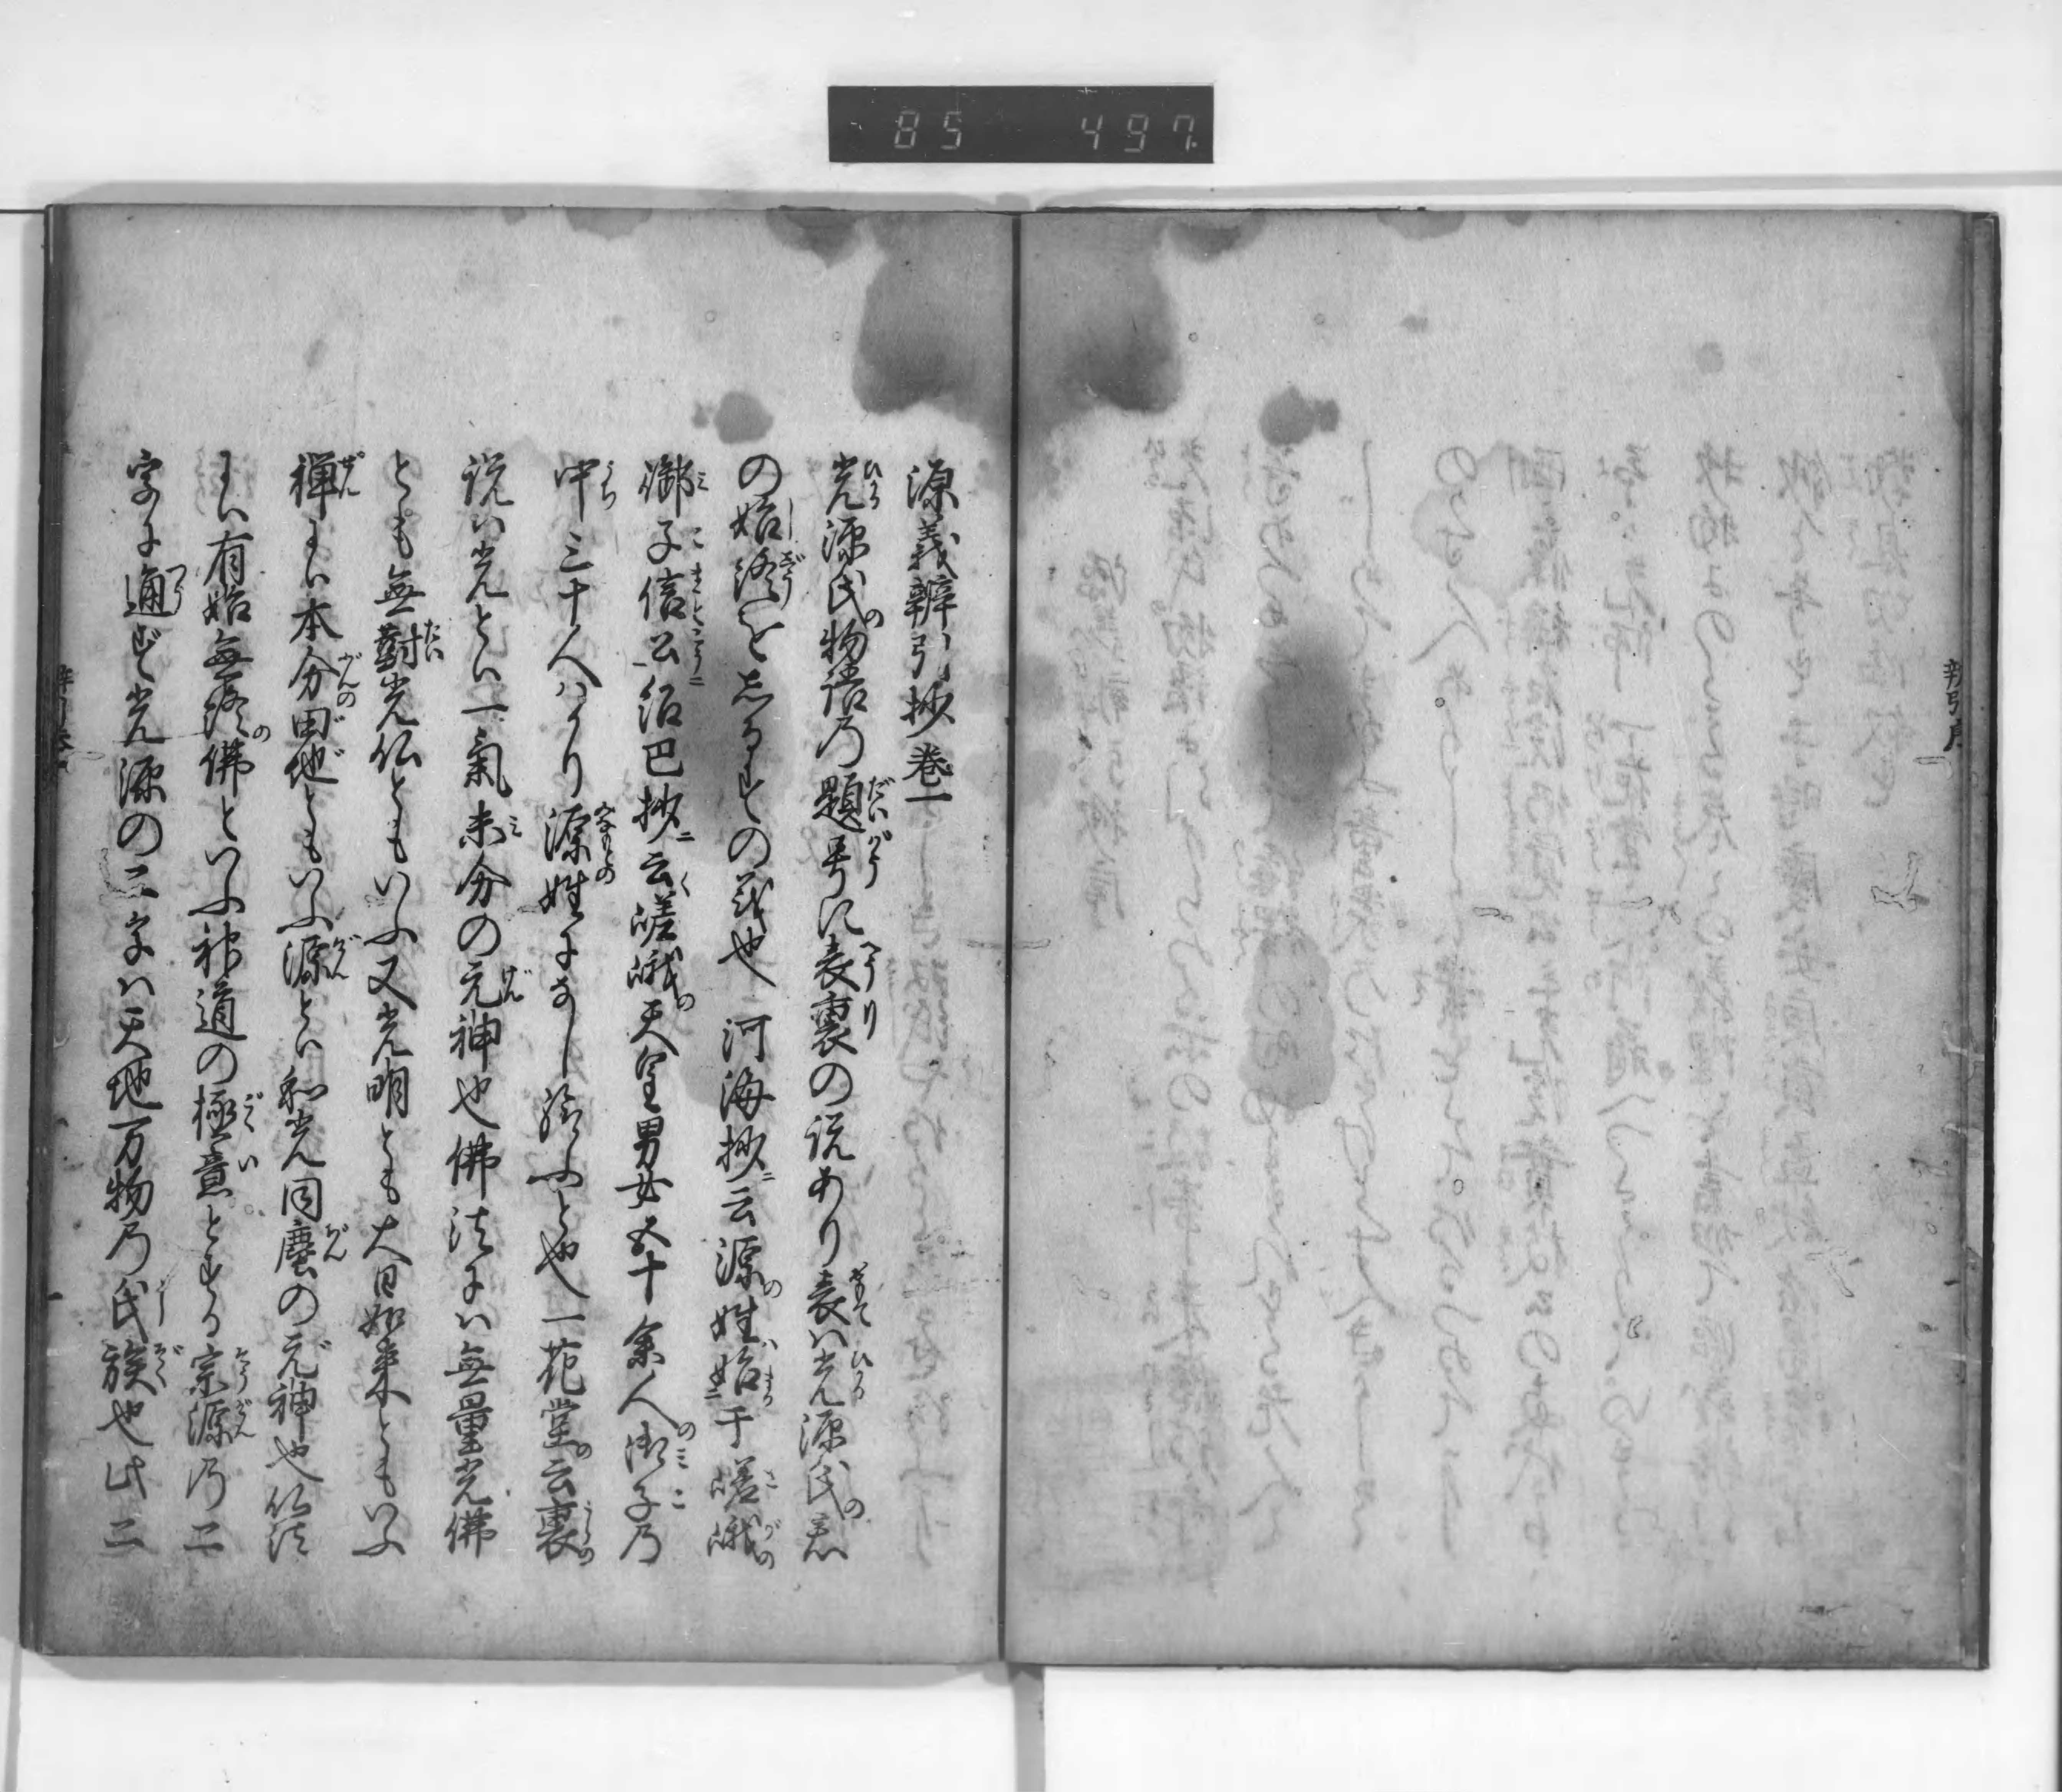 85 497
辨引序
源義辨引抄巻一
光源氏物語乃題号に表裏の説あり表は光源氏の
の始終をしるすの義也河海抄云源姓始于嵯峨
御子信公紹巴抄云嵯峨天皇男女五十余人御子乃
中三十人はかり源姓になし給ふと也一花堂云裏
説は光とい一氣未分の元神也佛法には無量光佛
とも無對光仏ともいふ又光明とも大日如来ともいふ
禅には本分田地ともいふ源とい和光同塵の元神也仏法
には有始無終佛といふ神道の極意とする宗源乃二
字に通ず光源の二字は天地万物乃氏族也此二